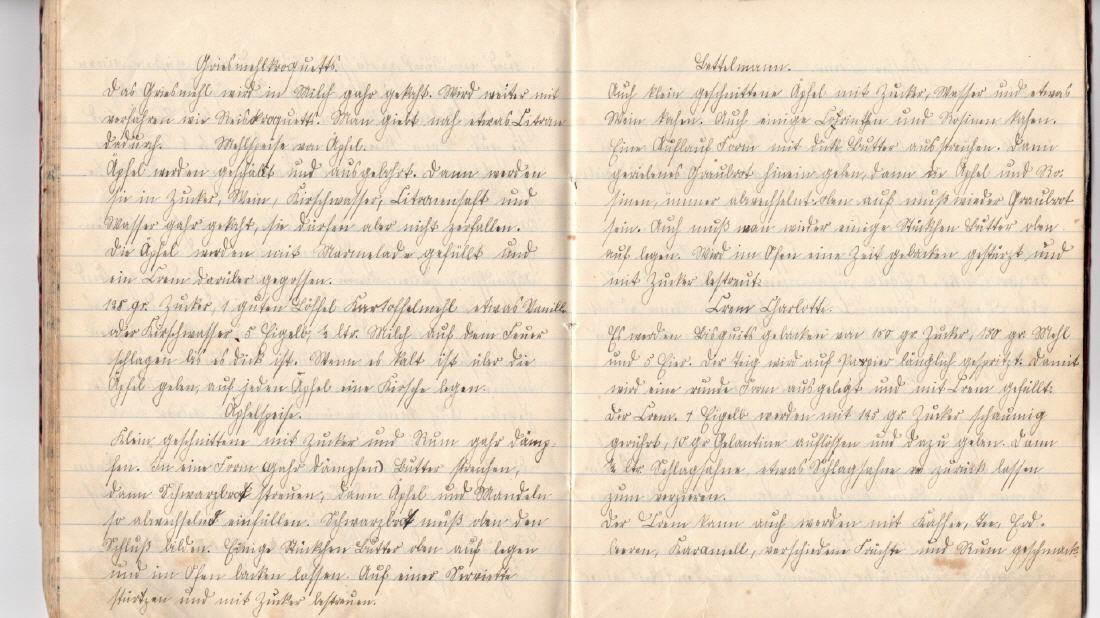 Griesmehlkroquetts.
Das Griesmehl wird in Milch gahr gekocht. Wird weiter mit
verfahren wie Reiskroquetts. Man giebt noch etwas Citron
dadurch. Mehlspeise von Äpfel.
Äpfel werden geschält und ausgebohrt. Dann werden
sie in Zucker, Wein, Kirschwasser, Citronensaft und
Wasser gahr gekocht, sie dürfen aber nicht zerfallen.
Die Äpfel werden mit Marmelade gefüllt und
ein Crem darüber gegossen.
125 gr. Zucker, 1 guten Löffel Kartoffelmehl etwas Vanille
oder Kirschwasser. 5 Eigelb, ½ ltr. Milch auf dem Feuer
schlagen bis es dick ist. Wenn es kalt ist über die
Äpfel geben, auf jeden Äpfel eine Kirsche legen.
Äpfelspeise.
Klein geschnittene mit Zucker und Rum gahr dämp
fen. In eine Form (gahr dämpfen) Butter streichen,
dann Schwarzbrot streuen, dann Äpfel und Mandeln
so abwechselnd einfüllen. Schwarzbrot muß oben den
Schluß bilden. Einige Stückchen Butter oben auf legen
und im Ofen backen lassen. Auf einer Serviette
stürtzen und mit Zucker bestreuen.
Bettelmann.
Auch klein geschnittene Äpfel mit Zucker, Wasser und etwas
Wein kochen. Auch einige Corinthen und Rosinen kochen.
Eine Auflauf Form mit dick Butter ausstreichen. Dann
geriebenes Graubrot hinein geben, dann die Äpfel und Ro-
sinen, immer abwechselnt. Oben auf muß wieder Graubrot
sein. Auch muß man wieder einige Stückchen Butter oben
auf legen. Wird im Ofen eine Zeit gebacken gestürzt und
mit Zucker bestreut.
Crem Charlotte.
Es werden Bisquits gebacken von 150 gr Zucker, 150 gr. Mehl
und 5 Eier. Der Teig wird auf Papier länglich gespritzt. Damit
wird eine runde Form ausgelegt und mit Crem gefüllt:
Der Crem. 4 Eigelb werden mit 125 gr. Zucker schaumig
gerührt, 10 gr Gelantine auflößen und dazu geben. Dann
½ ltr. Schlagsahne, etwas Schlagsahne zurück lassen
zum verzieren.
Der Crem kann auch werden mit Kaffee, Tee, Erd-
beeren, Karamell, verschiedene Früchte und Rum geschmack